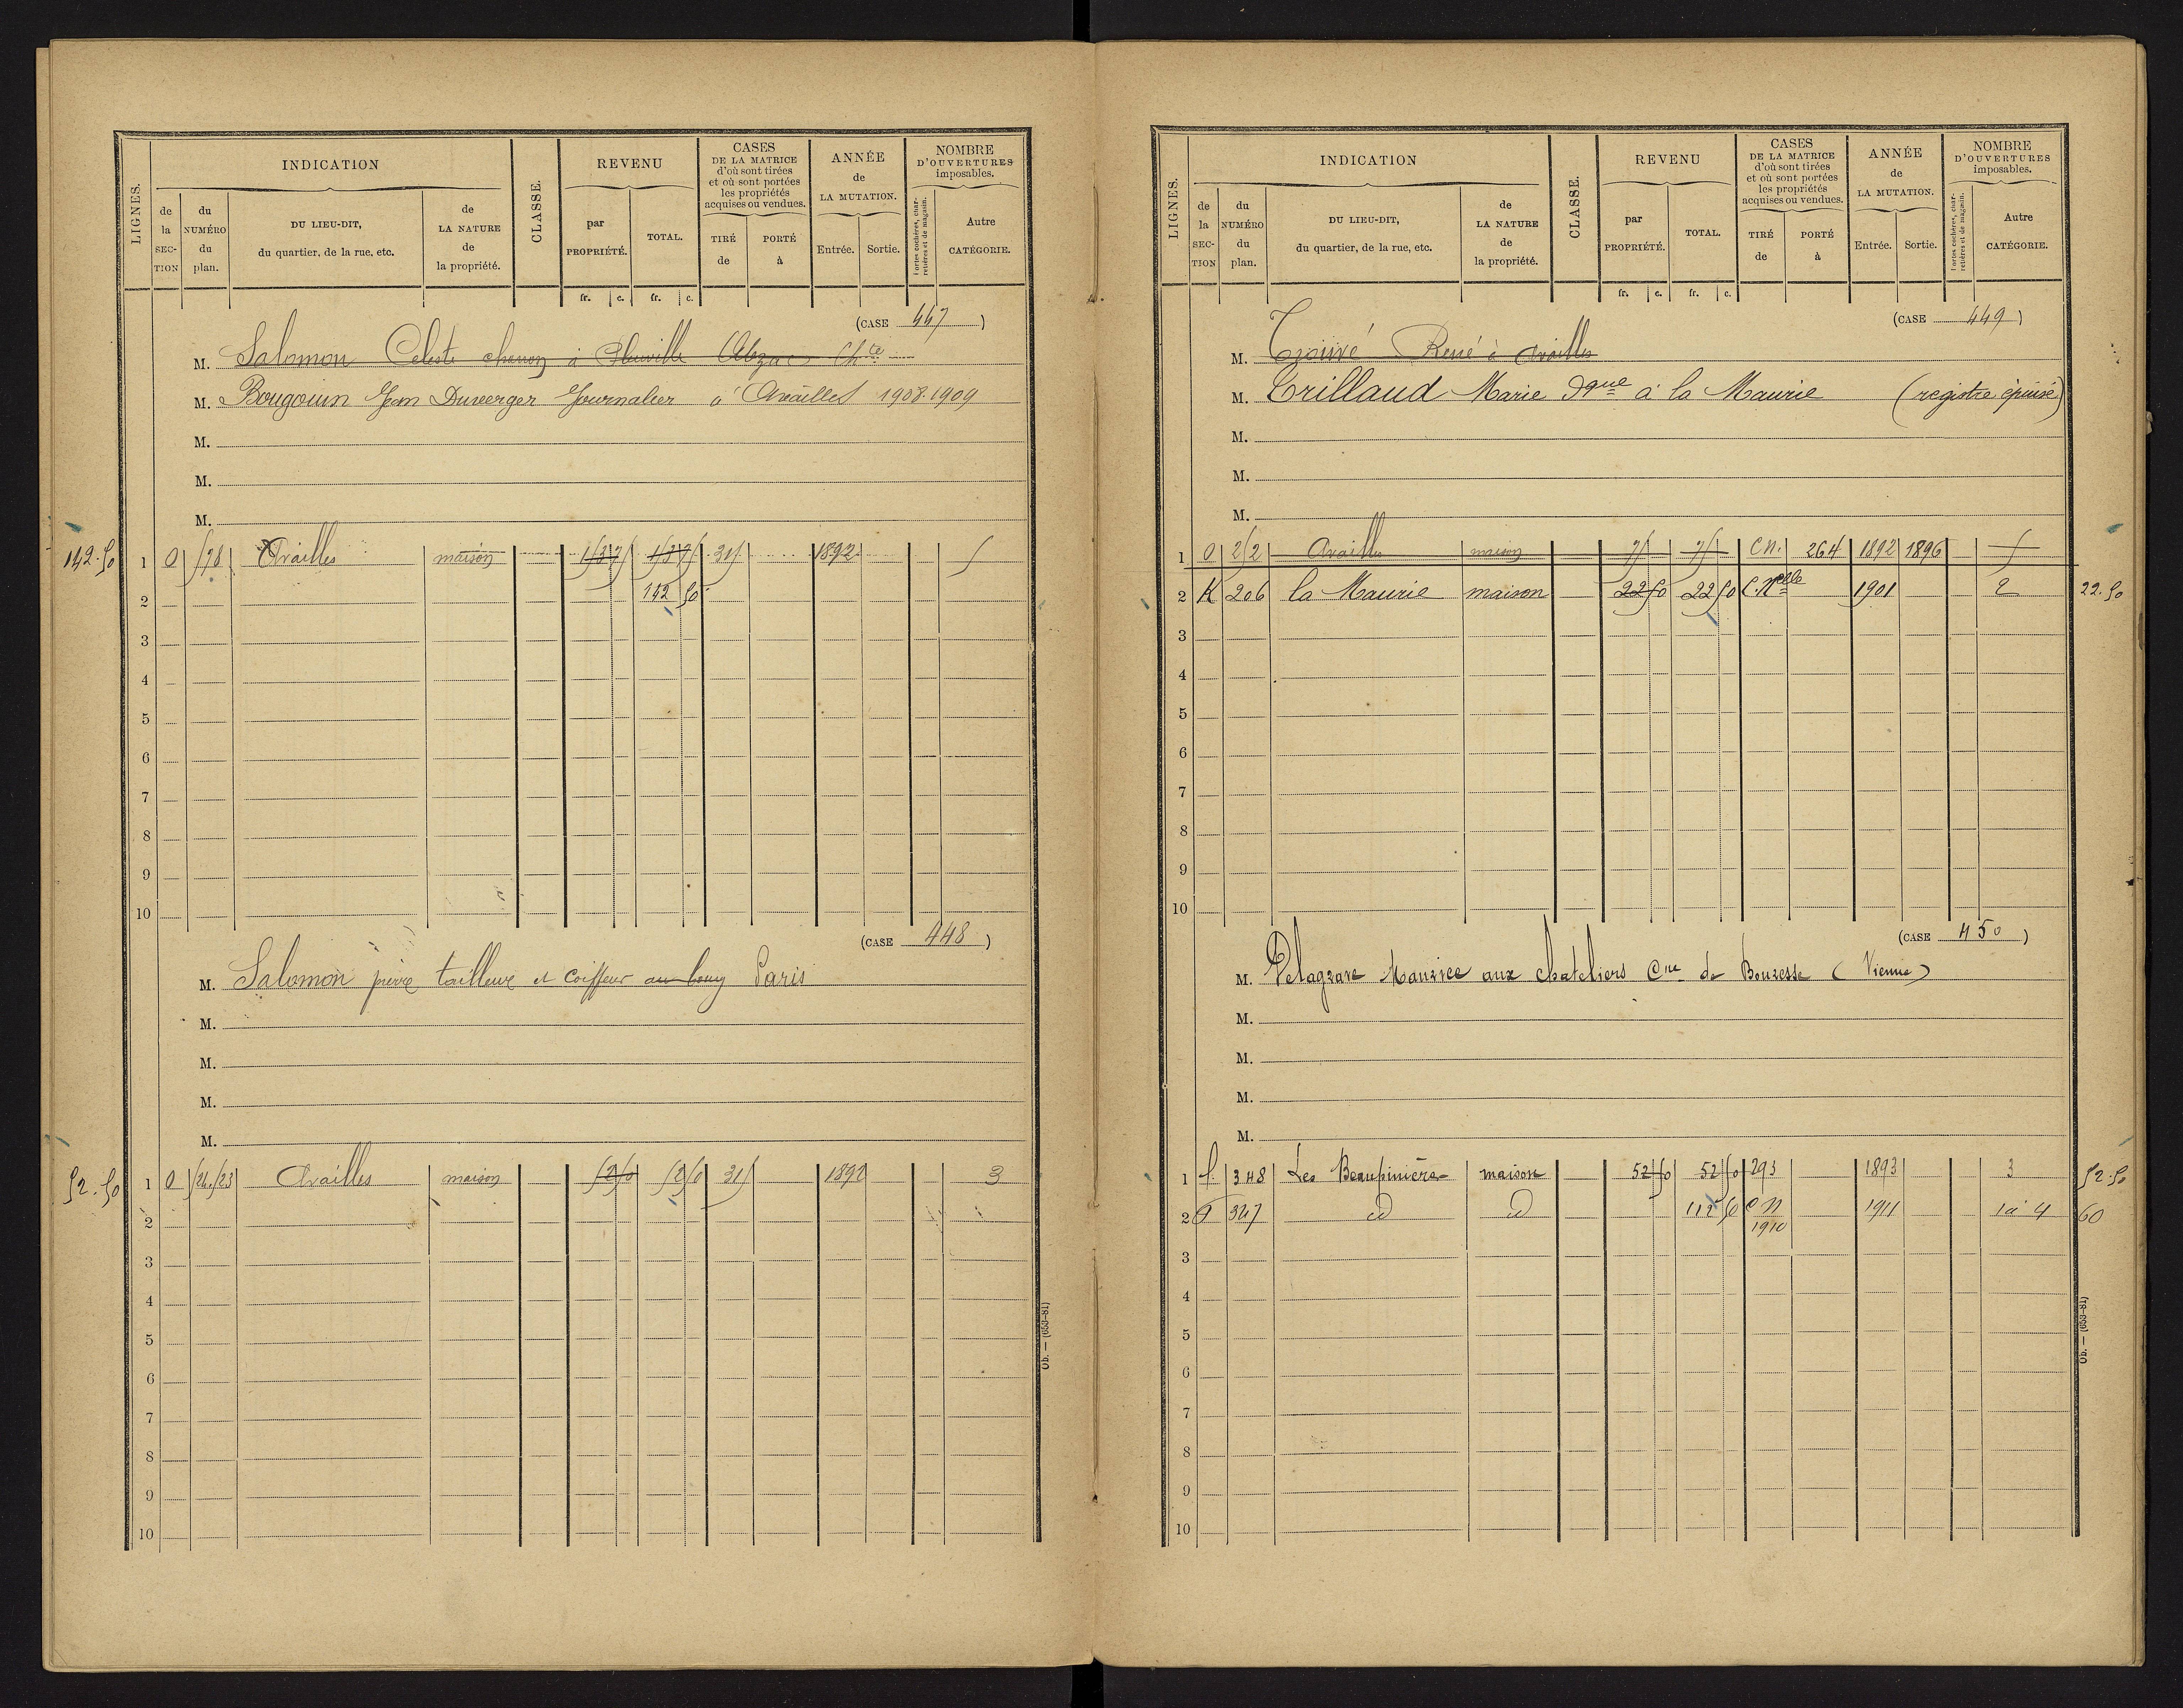 LIGNES.
INDICATION
de la SECTION
du NUMÉRO du plan.
DU LIEU-DIT, du quartier, de la rue, etc.
de LA NATURE de la propriété.
CLASSE.
REVENU
par PROPRIÉTÉ.
TOTAL.
CASES DE LA MATRICE d'où sont tirées et où sont portées les propriétés acquises ou vendues.
TIRÉ de
PORTÉ à
ANNÉE de LA MUTATION.
Entrée.
Sortie.
NOMBRE D'OUVERTURES imposables.
Portes cochères, charretières et de magasin.
Autre CATÉGORIE.
fr. c. fr. c.
(CASE 447)
M. Salomon Celeste à Pleuville Chte
M. Bougouin Jean Duverger Journalier à Availles 1908-1909
M.
M.
M.
142.50 1 O 578 Availles maison 1892 5
2 142 50
3
4
5
6
7
8
9
10
(CASE 448)
M. Salomon pierre tailleur et coiffeur au bourg Paris
M.
M.
M.
M.
52.50 1 O 524.523 Availles maison 52 50 52 50 315 1892 3
2
3
4
5
6
7
8
9
10
Ob. — (653-81)
LIGNES.
INDICATION
de la SECTION
du NUMÉRO du plan.
DU LIEU-DIT, du quartier, de la rue, etc.
de LA NATURE de la propriété.
CLASSE.
REVENU
par PROPRIÉTÉ.
TOTAL.
CASES DE LA MATRICE d'où sont tirées et où sont portées les propriétés acquises ou vendues.
TIRÉ de
PORTÉ à
ANNÉE de LA MUTATION.
Entrée.
Sortie.
NOMBRE D'OUVERTURES imposables.
Portes cochères, charretières et de magasin.
Autre CATÉGORIE.
fr. c. fr. c.
(CASE 449)
M. René à Availles
M. Trillaud Marie dque à la Maurie (registre épuisé)
M.
M.
M.
1 O 252 Availles maison 75 75 C.N. 264 1892 1896 5
2 K 206 la Maurie maison 22 50 22 50 C. Nelle 1901 2 22.50
3
4
5
6
7
8
9
10
(CASE 450)
M. Delagrave Maurice aux chateliers Cne de Bouresse (Vienne)
M.
M.
M.
M.
1 348 Les Beaupinière maison 52 50 52 50 293 1893 3 52.50
2 347 id id 112 50 C N 1910 1911 1 à 4 60
3
4
5
6
7
8
9
10
Ob. — (653-81)